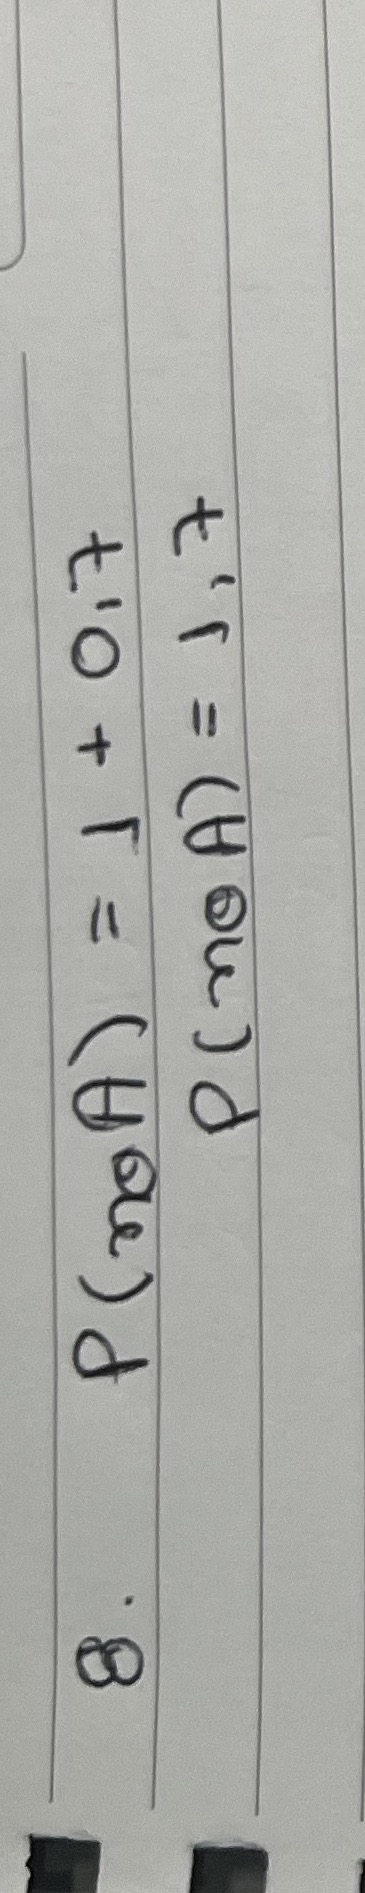 8. P(no A) = 1 + 0,7
P(no A) = 1,7